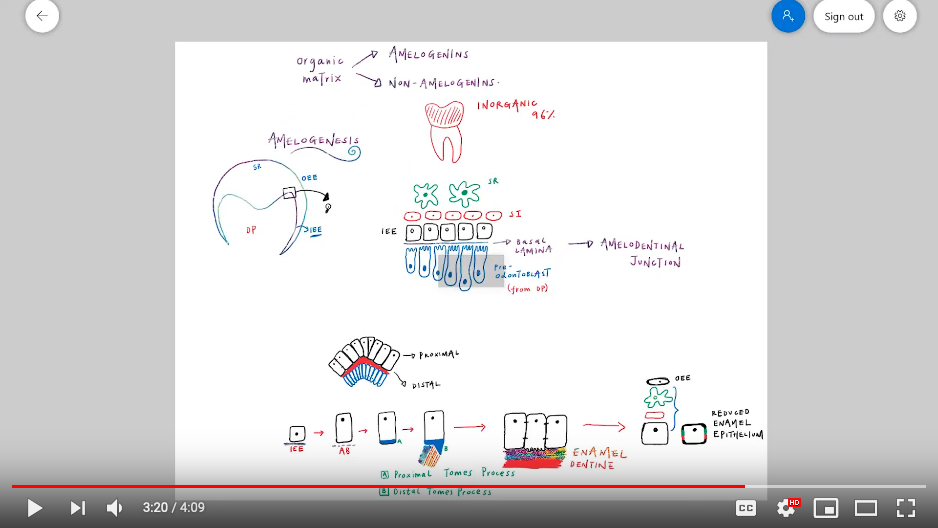 Sign out
AMELOGENINS
ORGANIC
MATRIX
NON-AMELOGENINS.
INORGANIC
96%
AMELOGENESIS
SR
OEE
DP
IEE
SR
SI
IEE
BASAL
LAMINA
AMELODENTINAL
JUNCTION
PRE-
ODONTOBLAST
(from DP)
PROXIMAL
DISTAL
OEE
REDUCED
ENAMEL
EPITHELIUM
IEE
AB
A
B
ENAMEL
DENTINE
A Proximal Tomes Process
B Distal Tomes Process
3:20 / 4:09
CC
HD